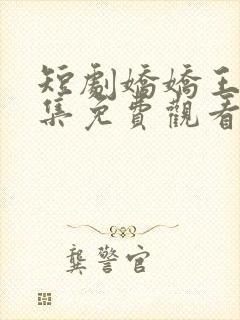 短劇嬌嬌王
集免費觀看
龔警官